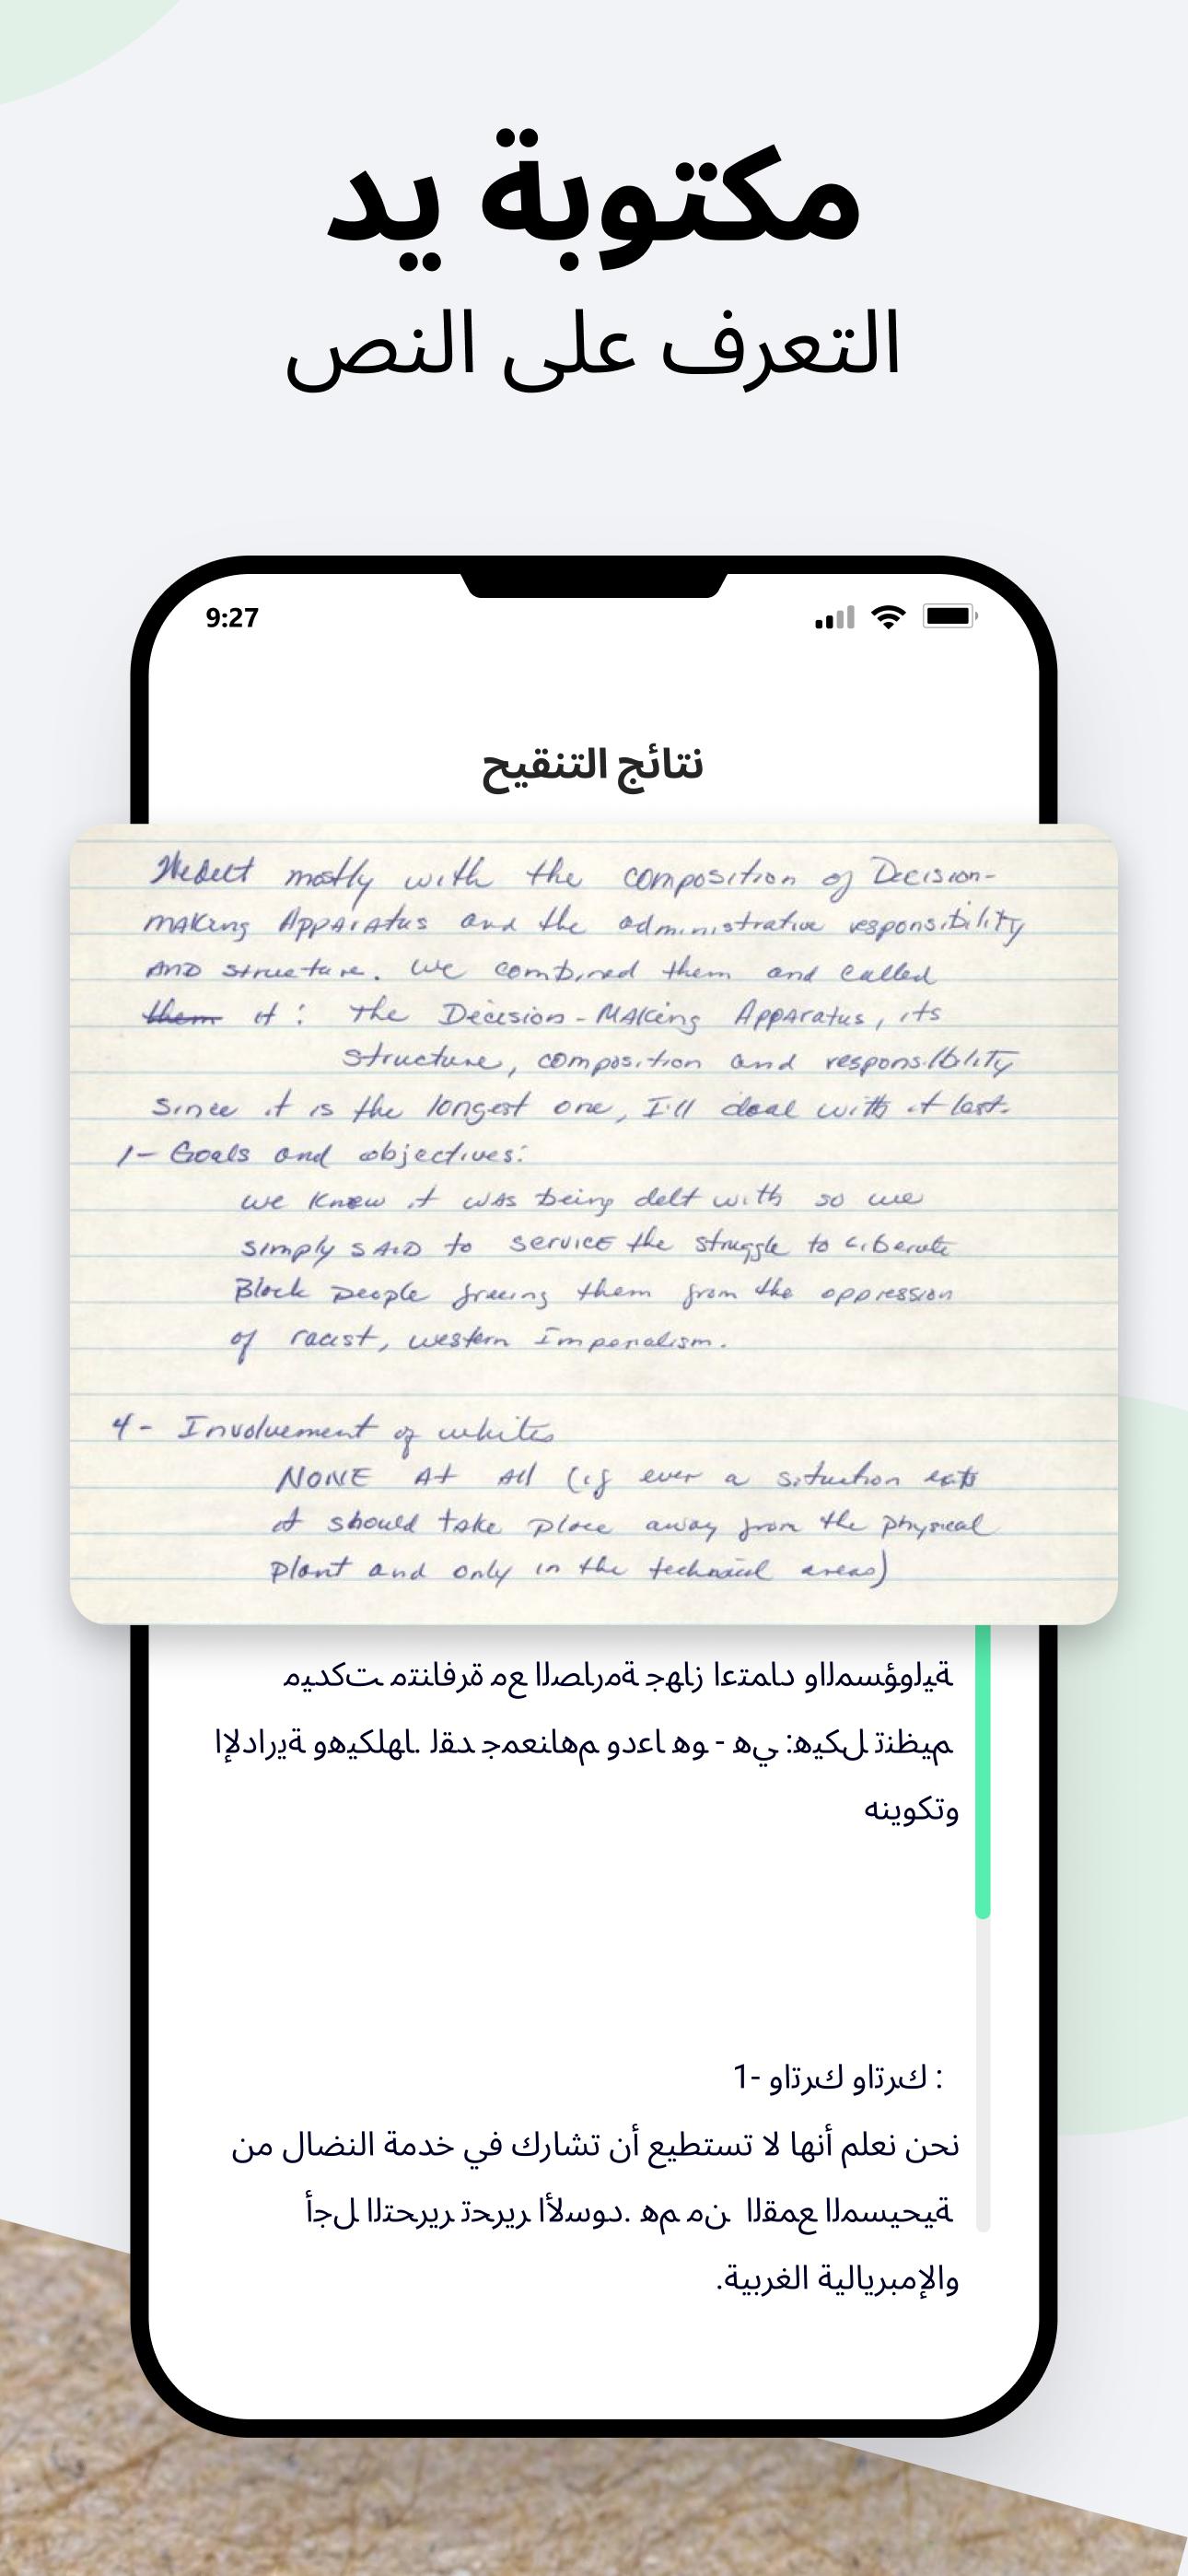 مكتوبة يد
التعرف على النص
9:27
نتائج التنقيح
We delt mostly with the composition of Decision-
making Apparatus and the administrative responsibility
AND structure. We combined them and called
~~them~~ it: The Decision-Making Apparatus, its
structure, composition and responsibility
Since it is the longest one, I'll deal with it last.
1- Goals and objectives:
we knew it was being delt with so we
simply SAID to service the struggle to liberate
Black people freeing them from the oppression
of racist, western Imperialism.
4- Involvement of whites
NONE At All (if ever a situation exists
it should take place away from the physical
plant and only in the technical areas)
ةيلوؤسملاو دامتعا زاهج ةمراصلا عم ةرفانتم تكديم
ميظنت لكيه: يه - وه اعدو مهانعمج دقل .اهلكيهو ةيرادلإا
وتكوينه
: كرتاو كرتاو -1
نحن نعلم أنها لا تستطيع أن تشارك في خدمة النضال من
ةيحيسملا عمقلا نم مه .دوسلأا ريرحت ريرحتلا لجأ
والإمبريالية الغربية.